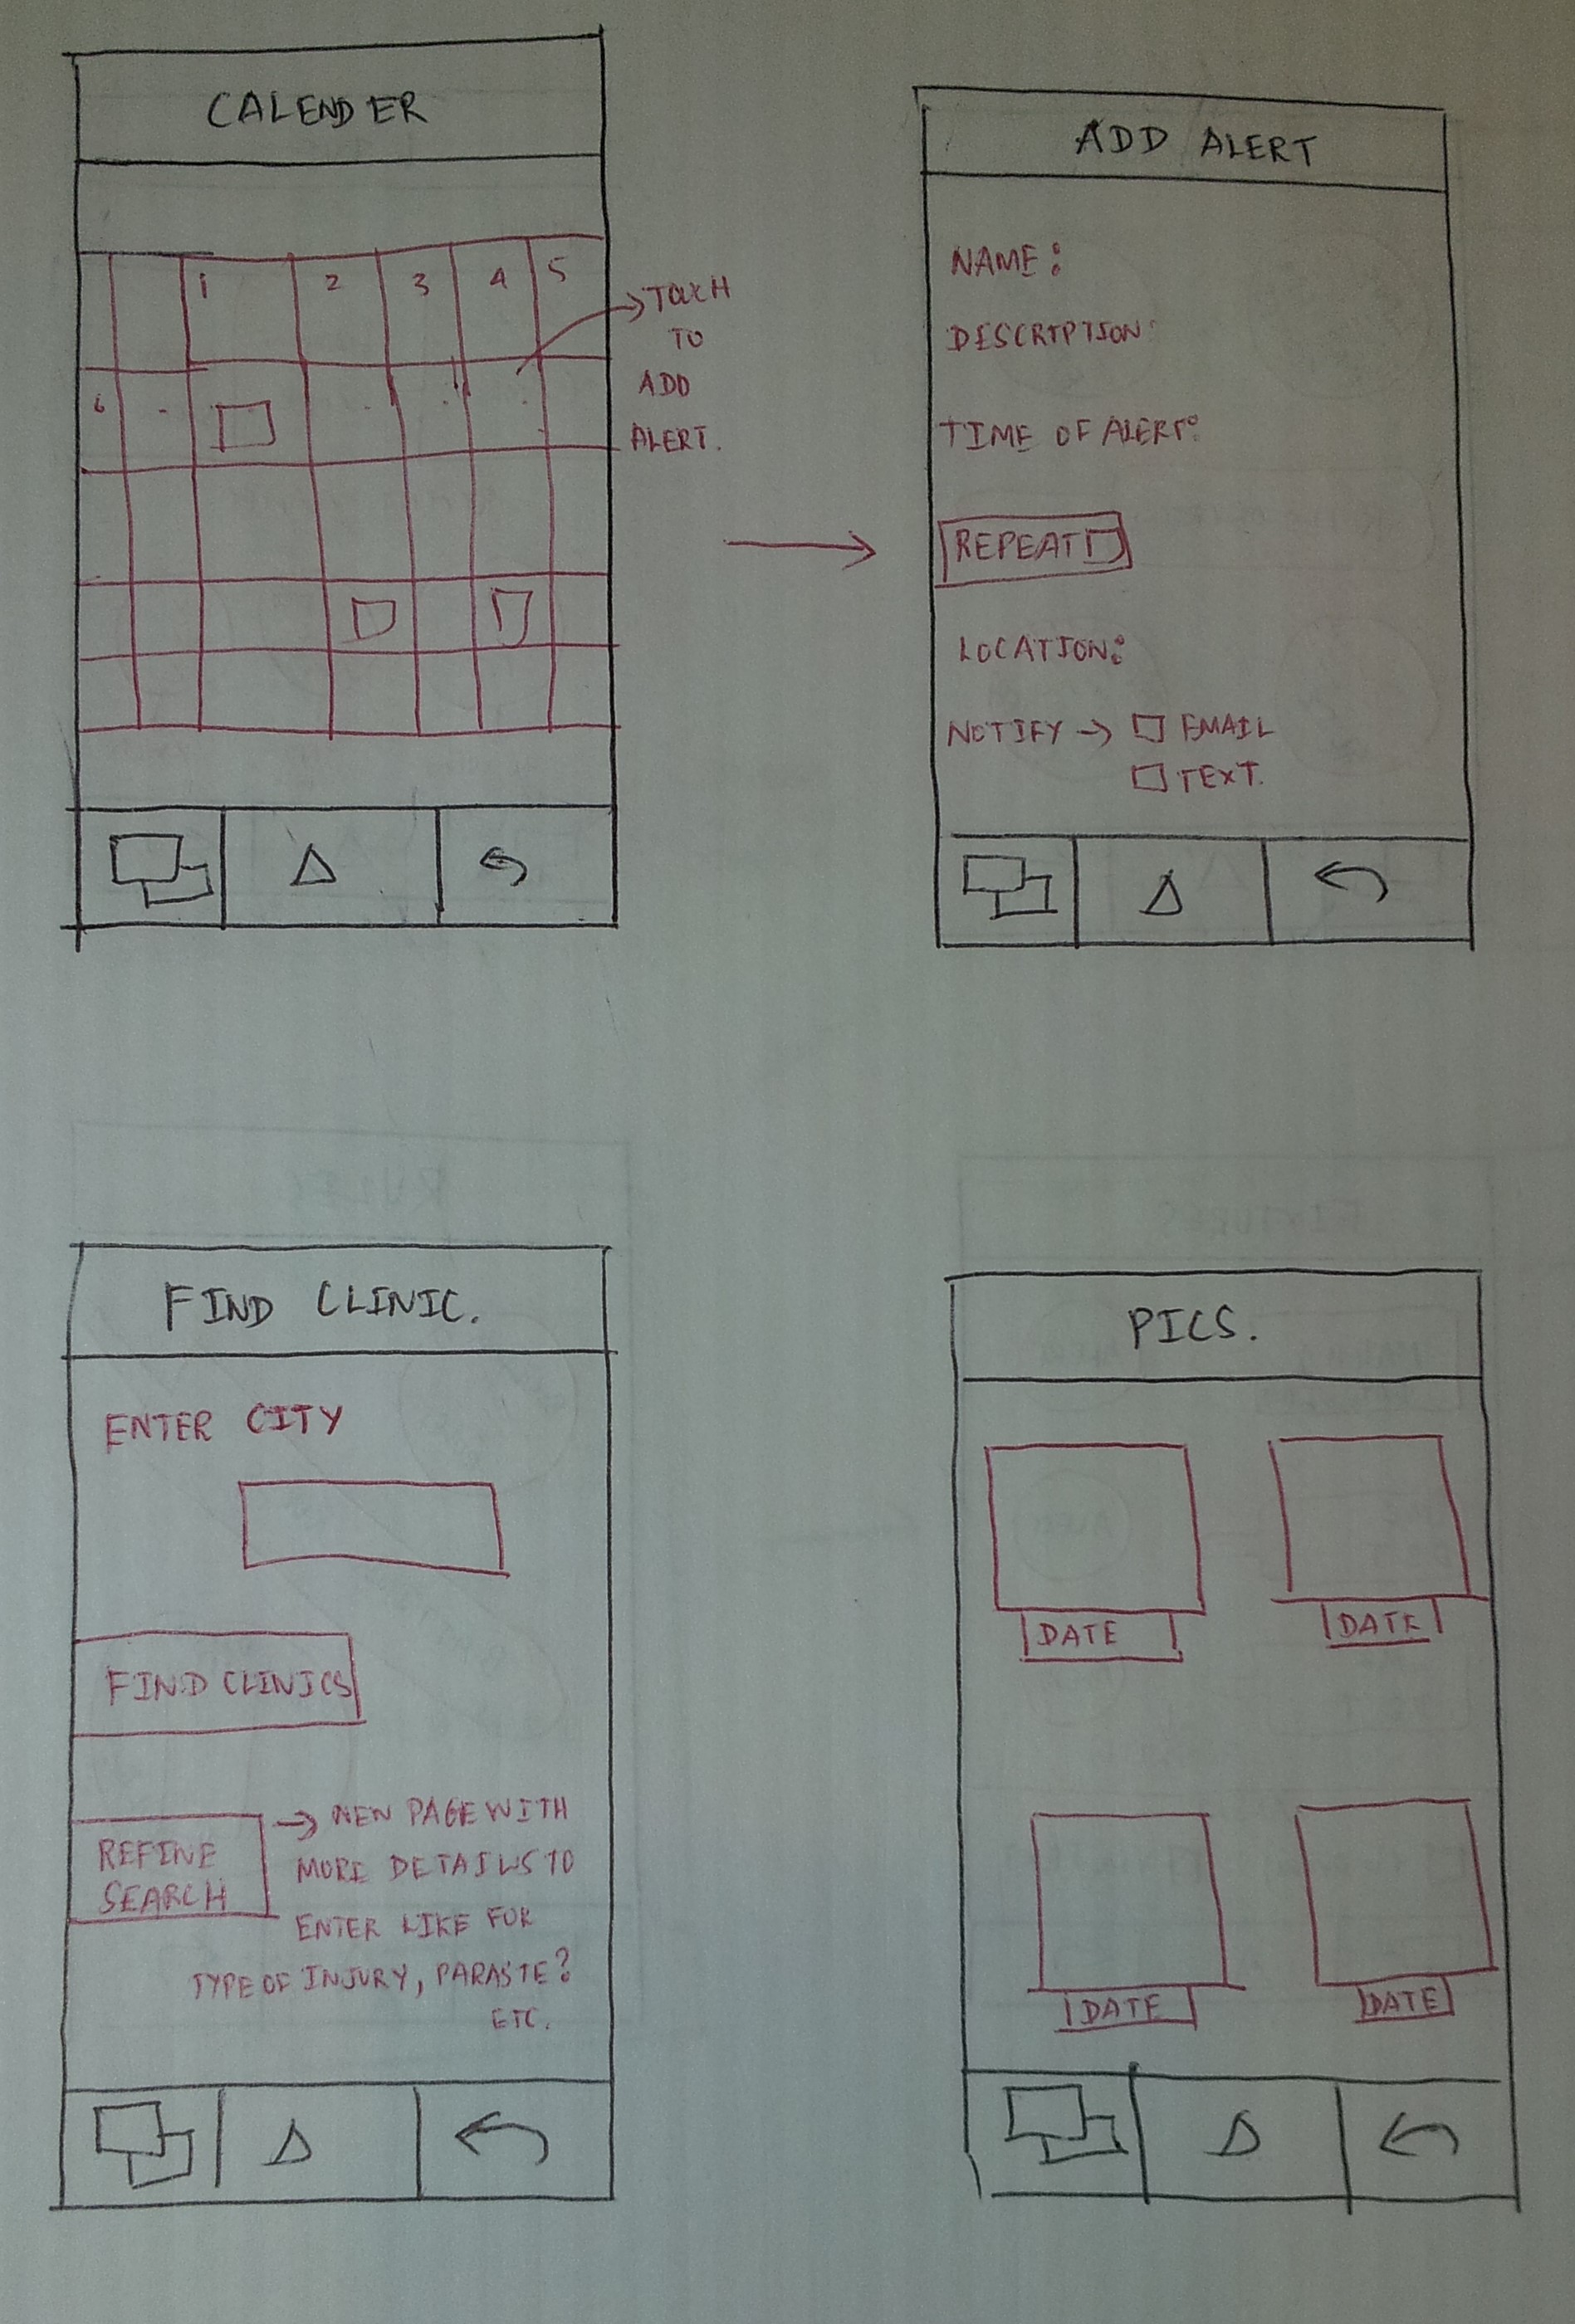 CALENDER
1 2 3 4 5
6
TOUCH
TO
ADD
ALERT.
ADD ALERT
NAME:
DESCRIPTION:
TIME OF ALERT:
REPEAT
LOCATION:
NOTIFY → EMAIL
TEXT.
FIND CLINIC.
ENTER CITY
FIND CLINICS
REFINE
SEARCH
→ NEW PAGE WITH
MORE DETAILS TO
ENTER LIKE FOR
TYPE OF INJURY, PARASTE?
ETC.
PICS.
DATE
DATE
DATE
DATE